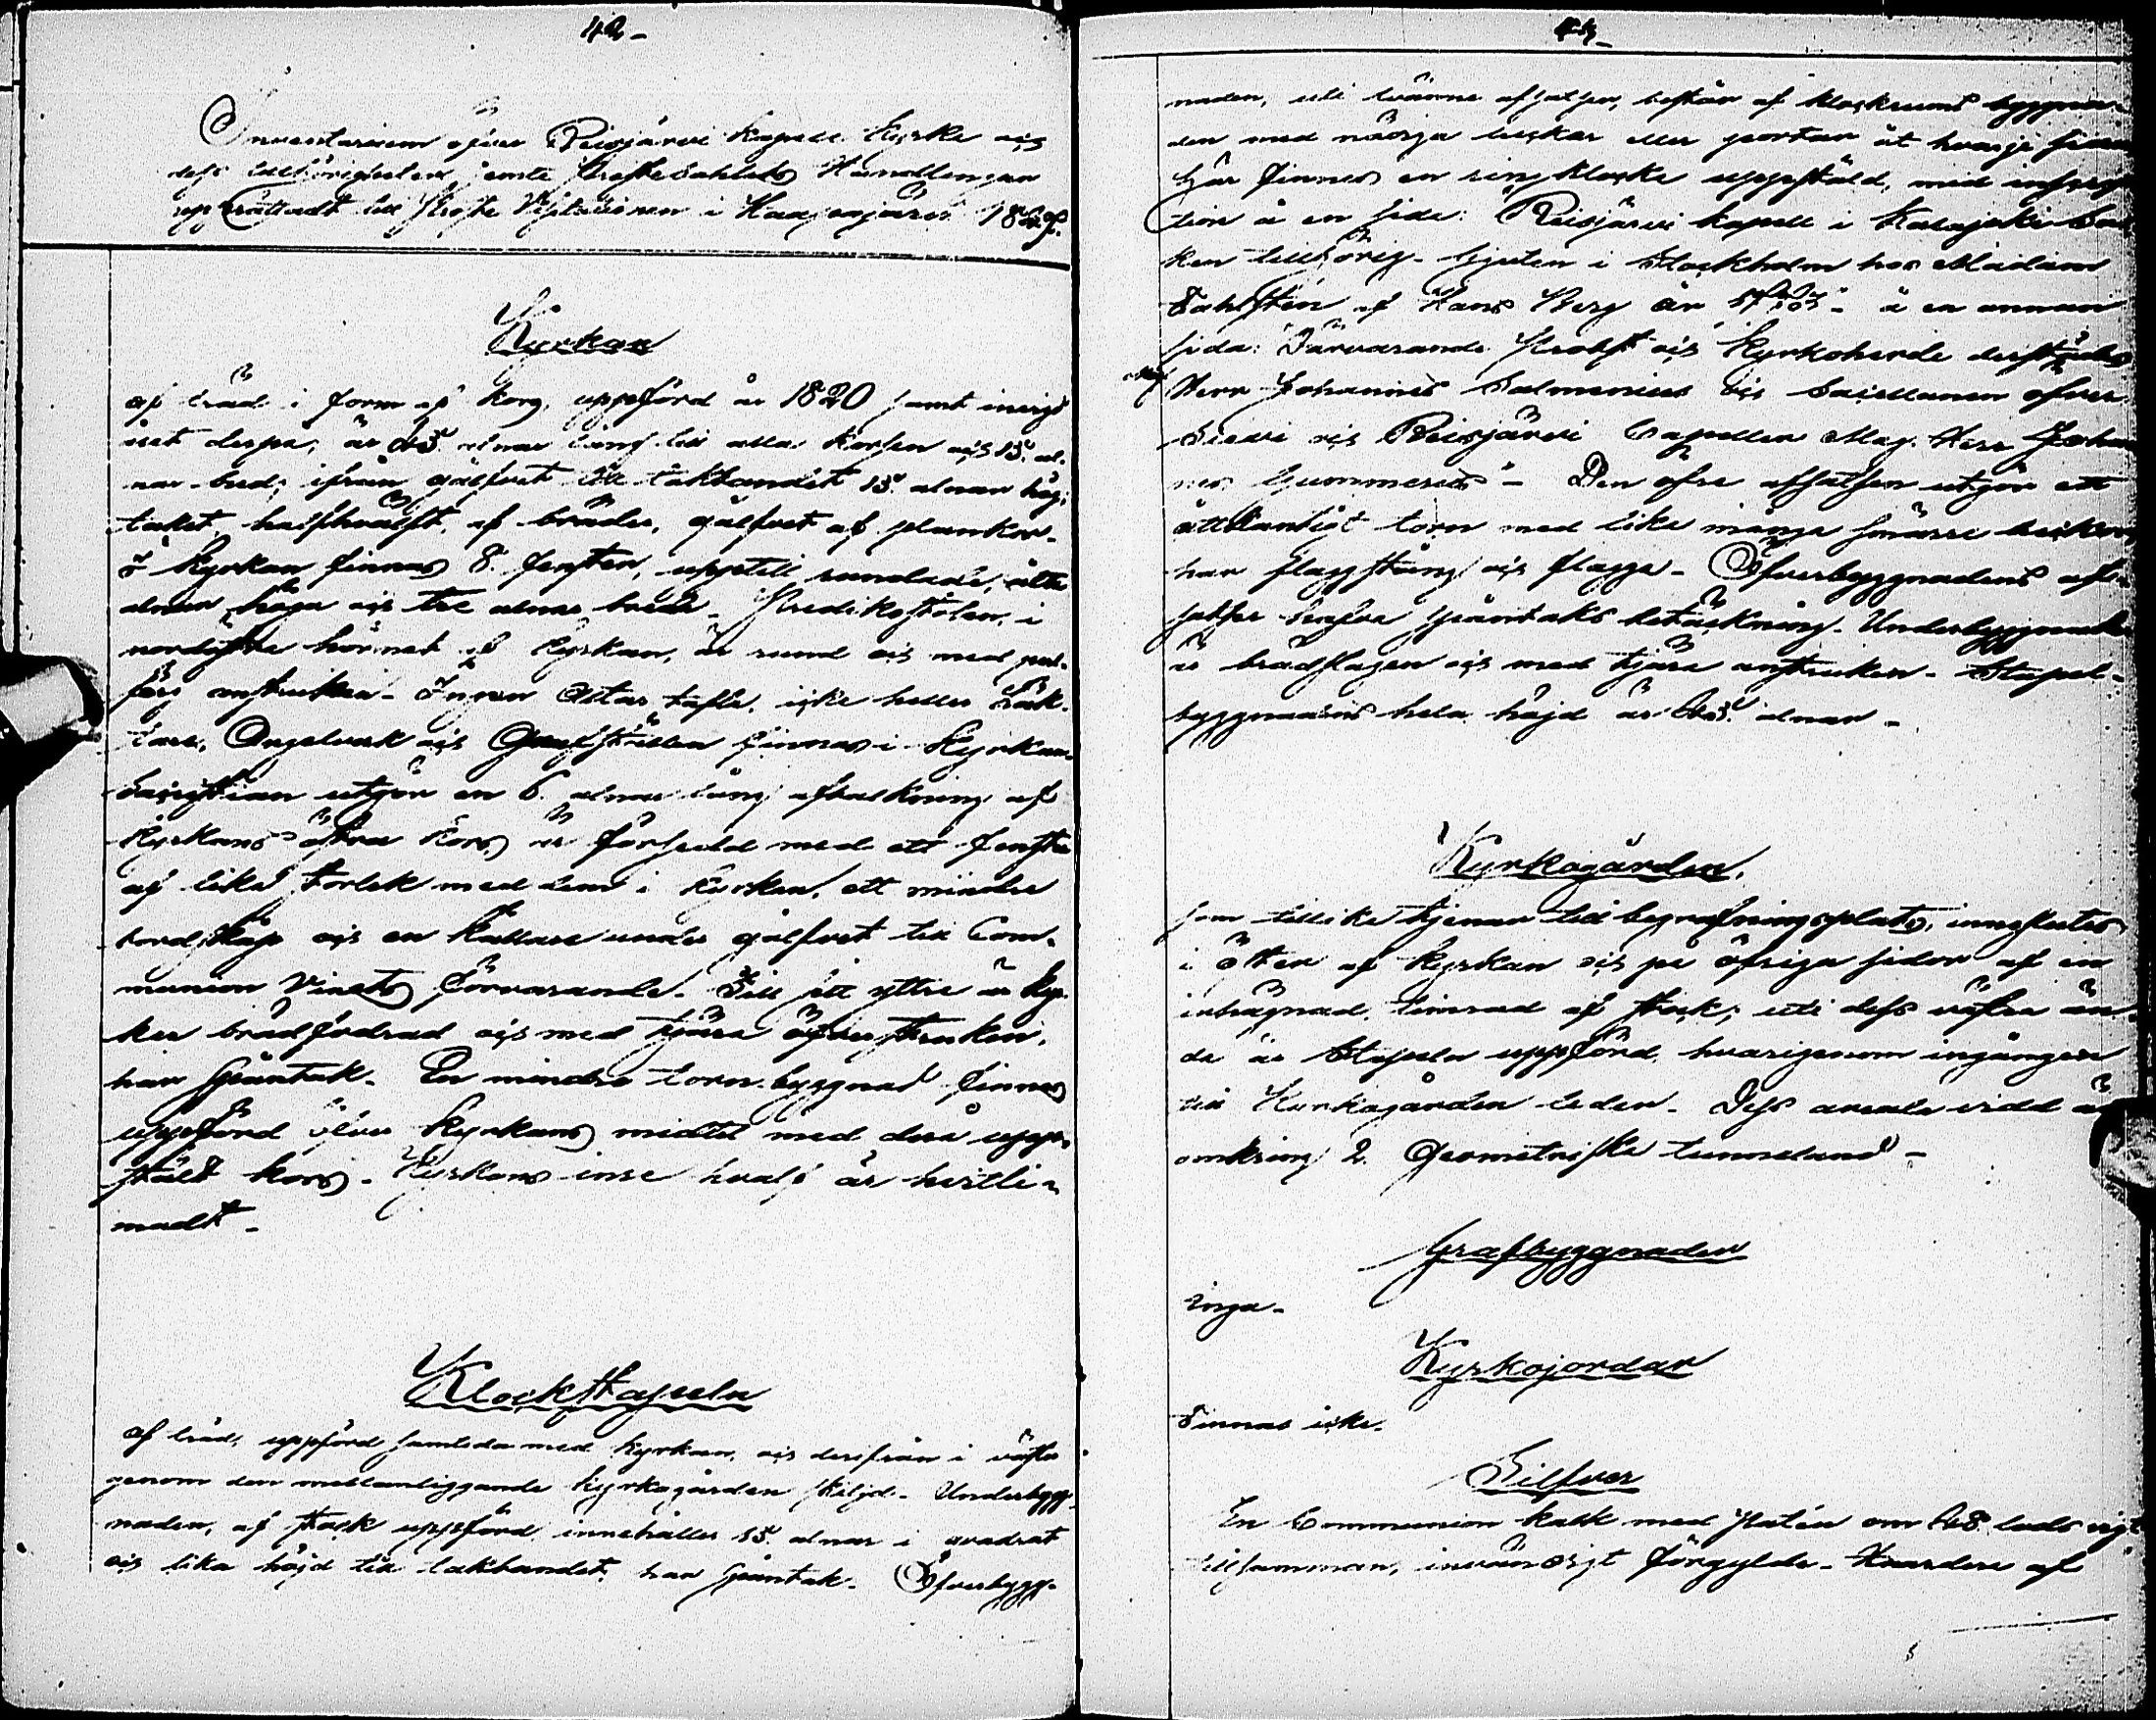 42-
Inventarium öfver Reisjärvi Kapell Kyrka och
dess tillhörigheter jemte Skiftesahlets Handlingar
upprättadt till Prosts Visitationen i Haapajärvi
Kyrkan
af träd i form af Kors, uppförd år 1820 samt invigd
året derpå, är alnar lång till alla korsen och 15. al-
nar bred; ifrån gålfvet till takbandet 15. alnar hög;
taket halfhvälft, af bräder, gålfvet af plankor.
I Kyrkan finnas 8. fenster, upptill rundade, åtta
alnar höga och tre alnar breda. Predikostolen, i
nordöstra hörnet af Kyrkan, är rund och med perl-
färg anstruken. Ingen Altar tafla, icke heller Läk-
tare, Orgelverk och Grafställen finnas i Kyrkan.
Sacristian utgör en 6. alnar lång afbalkning af
Kyrkans östra Kors, är försedd med ett fenster
af lika storlek med dem i Kyrkan, ett mindre
bord, skåp och en källare under gålfvet till Com-
munion Vinets förvarande. Till sitt yttre är Kyr-
kan brädfodrad och med tjära öfverstruken,
har spåntak. En mindre torn byggnad finnes
uppförd öfver Kyrkans midtel med dera upp-
stäldt kors. Kyrkans inre hvalf är hvitli-
madt-
Klockstapeln
af träd, uppförd samtida med Kyrkan, och derifrån i väster
genom den mellanliggande Kyrkogården skiljd. Underbygg-
naden, af stock uppförd, innehåller 15. alnar i qvadrat
och lika höjd till takbandet, har spåntak. Öfverbygg-
43-
naden, uti tvänne afsatser, består af klockrums byggna-
den med några luckor eller portar åt hvarje sida
här finnes en ringklocka uppstäld, med inscrip-
tion å en sida: Reisjärvi kapell i Kalajoki Soc-
ken tillhörig. Gjuten i Stockholm hos Madam
Fahlstén af Hans Berg år å en annan
sida: Därvarande Probst och Kyrkoherde derstädes
Herr Johannes Salmenius och Sacellanen öfver
Sievi och Reisjärvi Capeller Mag. Herr Johan-
nes Gummerus" - Den öfre afsatsen utgör ett
åttkantigt torn med lika många smärre luckor
har flaggstång och flagga. Öfverbyggnadens af-
satser hafva spåntaks betäckning. Underbyggnaden
är brädslagen och med tjära anstruken. Stapel-
byggnadens hela höjd är alnar-
Kyrkogården,
som tillika tjenar till begrafningsplats, inneslutes
i öster af Kyrkan och på öfriga sidor af en
inhägnad, timrad af stock; uti dess västra än-
da är Stapeln uppförd, hvarigenom ingången
till Kyrkogården leder. Dess areala vidd är
omkring 2. Geometriska tunneland-
Grafbyggnader
Inga-
Kyrkojordar
Finnas icke.
Silfver
En Communion kalk med patén om 48 lods vigt
tillsamman, invändigt förgylde. Kardere af